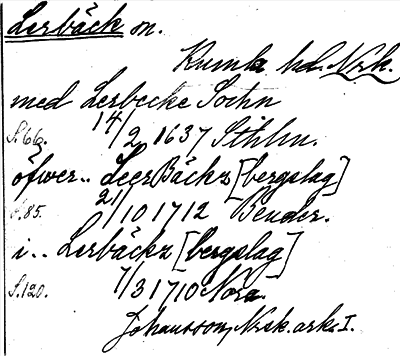 Lerbäck sn.
Kumla hd. Nrk.
med Lerbecke Sochn
S. 66. 14/2 1637 Sthlm.
öfwer.. LeerBäckz [bergslag]
S. 85. 21/10 1712 Bender.
i.. Lerbäckz [bergslag]
S. 120. 7/3 1710 Nora.
Johansson, Nrk. ark. I.